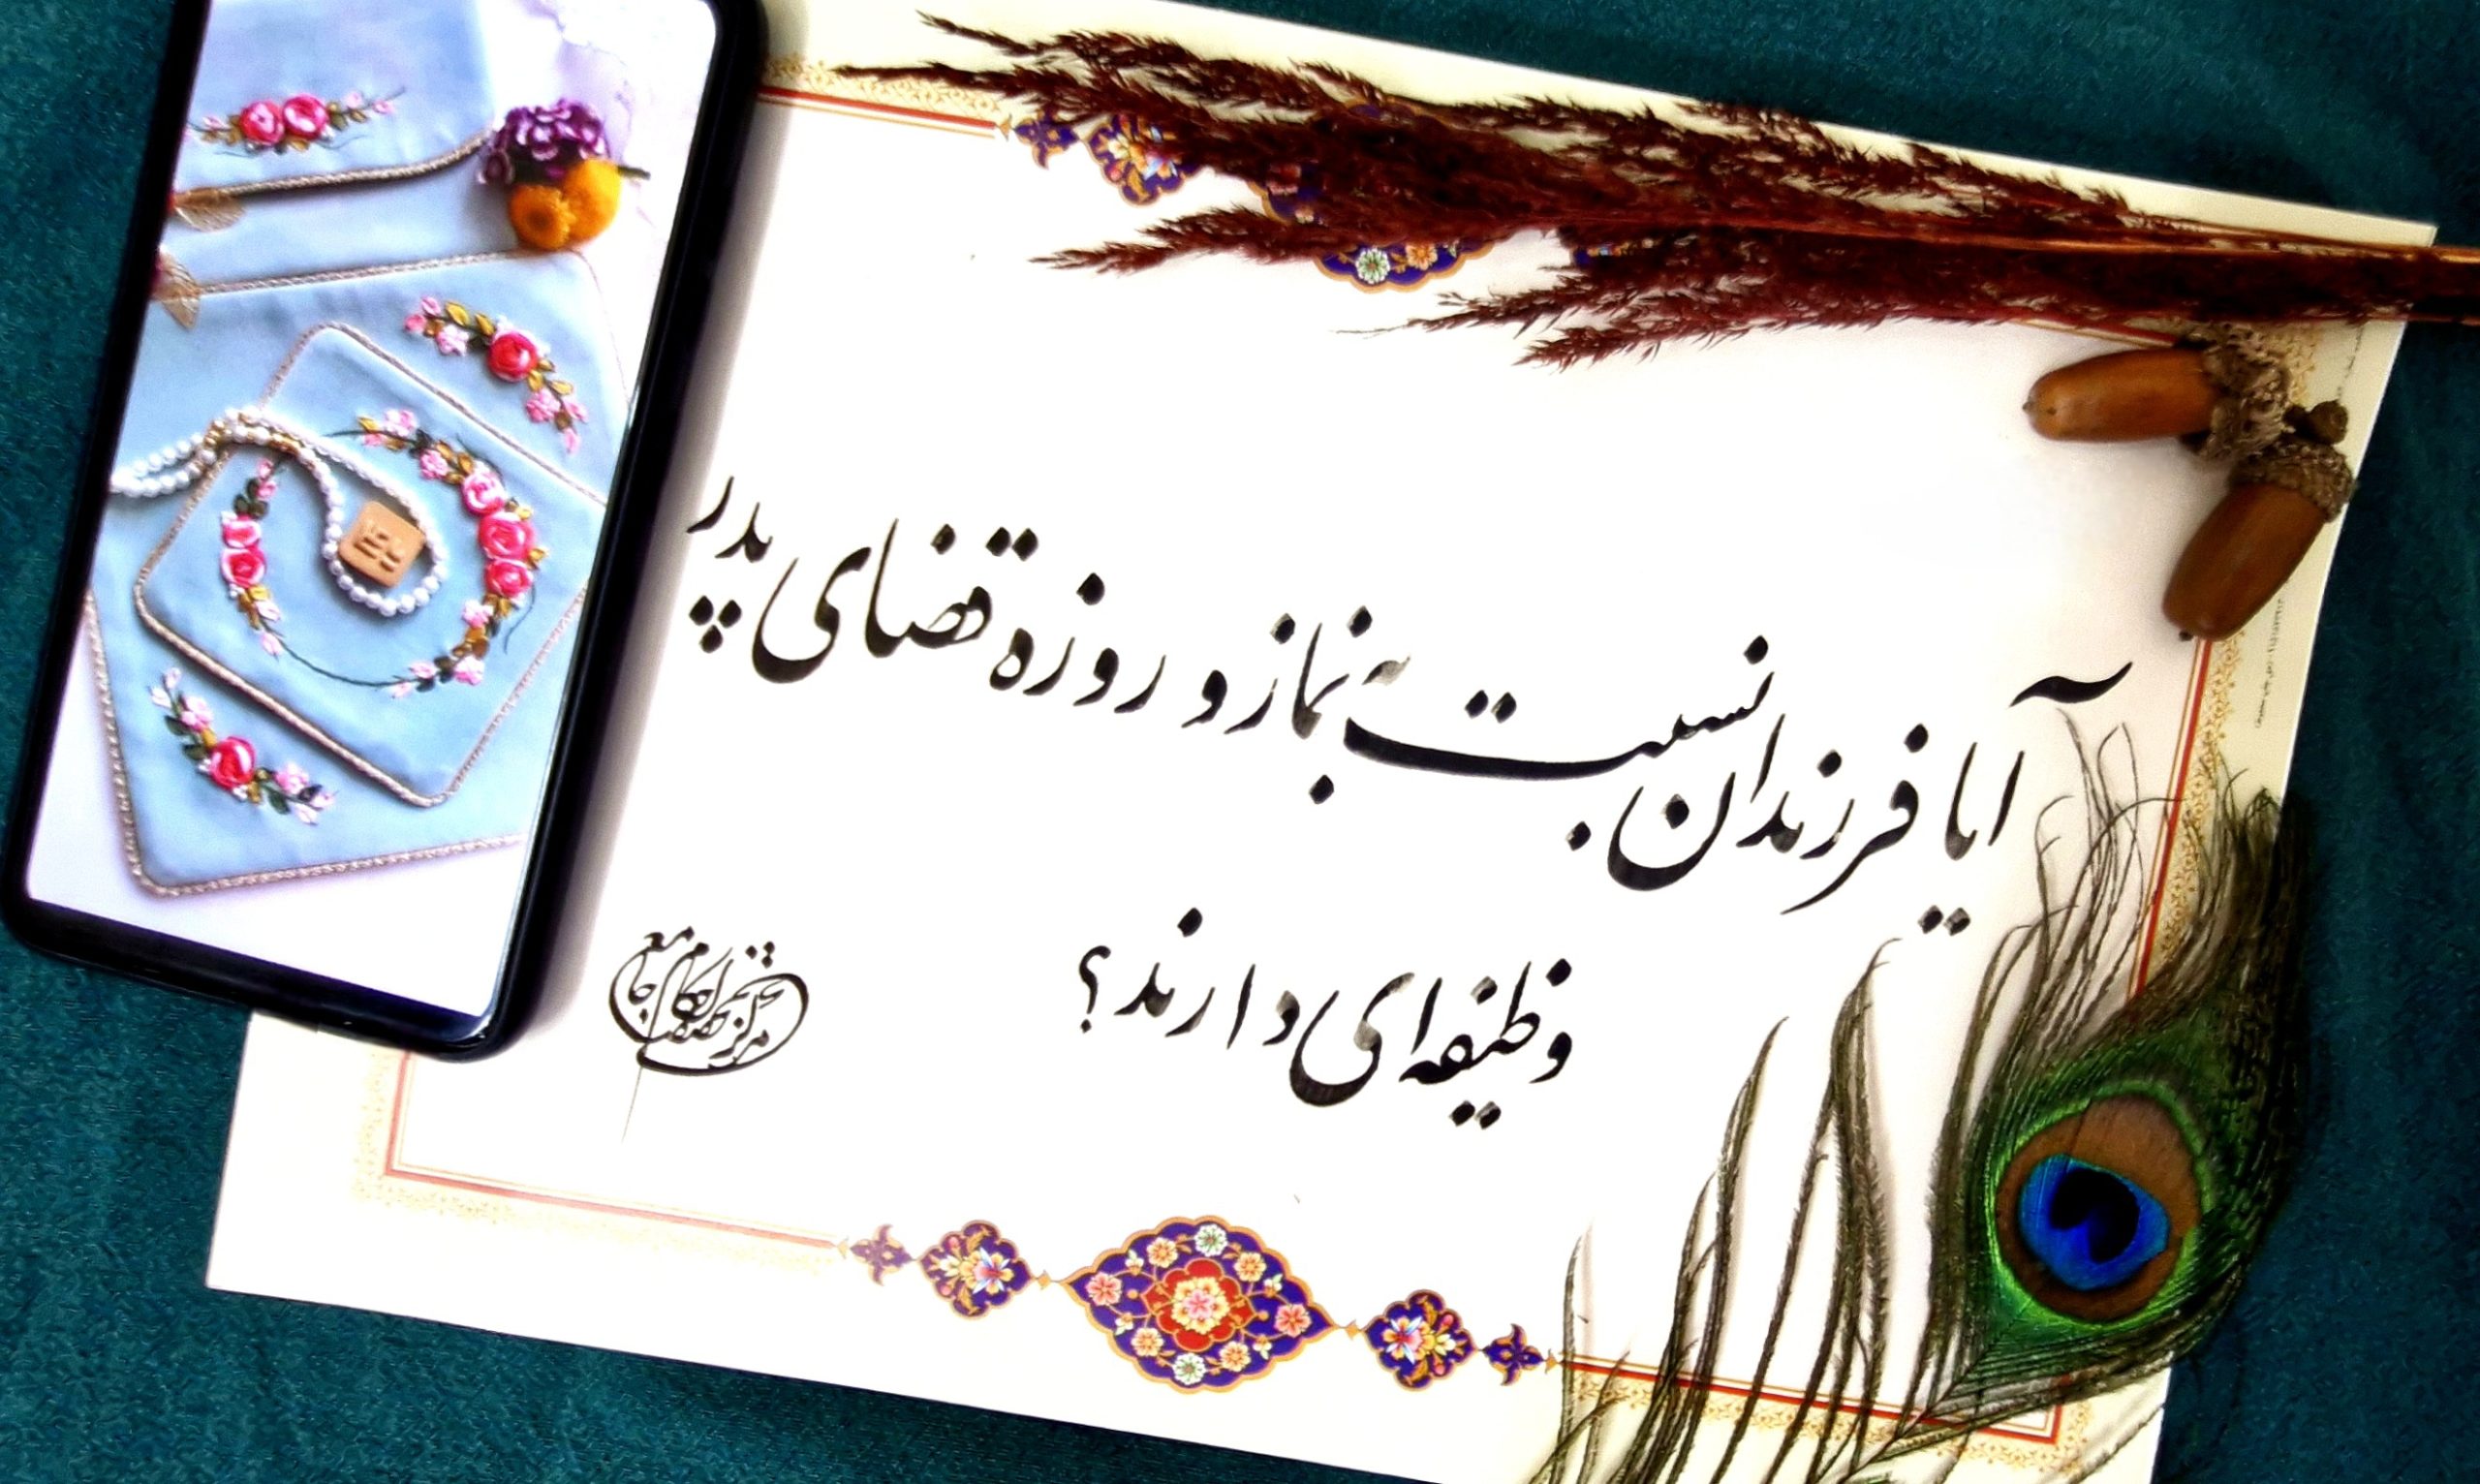 آیا فرزندان نسبت به نماز و روزه قضای پدر
وظیفه‌ای دارند؟
مرکز تخصصی احکام جامع